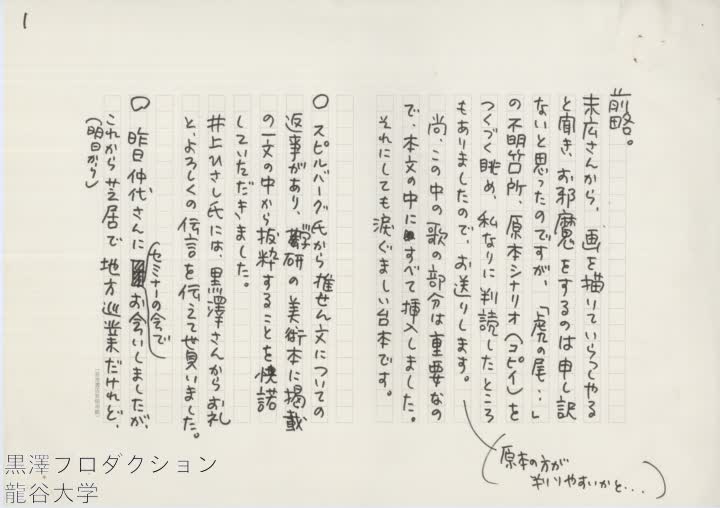 1
前略。
末広さんから、画を描いていらっしゃる
と聞き、お邪魔をするのは申し訳
ないと思ったのですが、「虎の尾…」
の不明箇所、原本シナリオ（コピイ）を
つくづく眺め、私なりに判読したところ
もありましたので、お送りします。
（原本の方が
判りやすいかと…）
尚、この中の歌の部分は重要なの
で、本文の中にすべて挿入しました。
それにしても涙ぐましい台本です。
○ スピルバーグ氏から推せん文についての
返事があり、学研の美術本に掲載
の一文の中から抜粋することを快諾
していただきました。
井上ひさし氏には、黒澤さんからお礼
と、よろしくの伝言を伝えて貰いました。
○ 昨日仲代さんにセミナーの会でお会いしましたが、
これから芝居で地方巡業だけれど、
（明日から）
黒澤プロダクション
龍谷大学